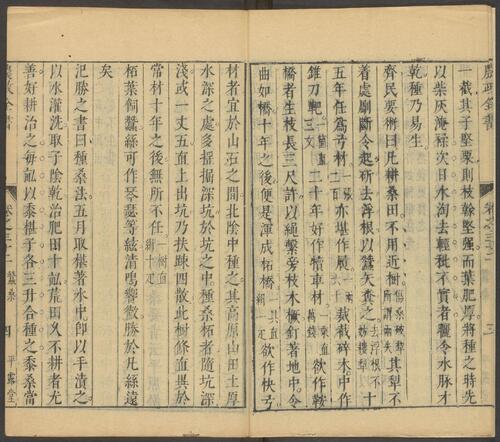 農政全書
卷之三十二
三
一截其子堅栗則枝幹堅强而葉肥厚將種之時先
以柴灰淹揉次日水淘去輕秕不實者曬令水脉才
乾種乃易生
齊民要術曰凡耕桑田不用近樹傷桑破犁所謂兩失其犁不
着處劚斷令起斫去浮根以蠶矢糞之去浮根不妨耬犁十
五年任爲弓材一張二百亦堪作履一兩裁截碎木中作
錐刀靶一箇直三文二十年好作犢車材一乘直萬錢欲作鞍
橋者生枝長三尺許以繩繫旁枝木橛釘著地中令
曲如橋十年之後便是渾成柘橋一具直絹一疋欲作快弓
材者宜於山石之間北陰中種之其高原山田土厚
水深之處多掘深坑於坑之中種桑柘者隨坑深
淺或一丈五直上出坑乃扶疎四散此樹條直異於
常材十年之後無所不任一樹直絹十疋
柘葉飼蠶絲可作琴瑟等絃清鳴響徹勝於凡絲遠
矣
氾勝之書曰種桑法五月取椹著水中即以手漬之
以水灌洗取子陰乾治肥田十畝荒田久不耕者尤
善好耕治之每畝以黍椹子各三升合種之黍桑當
農政全書
卷之三十二 蠶桑
四 平露堂